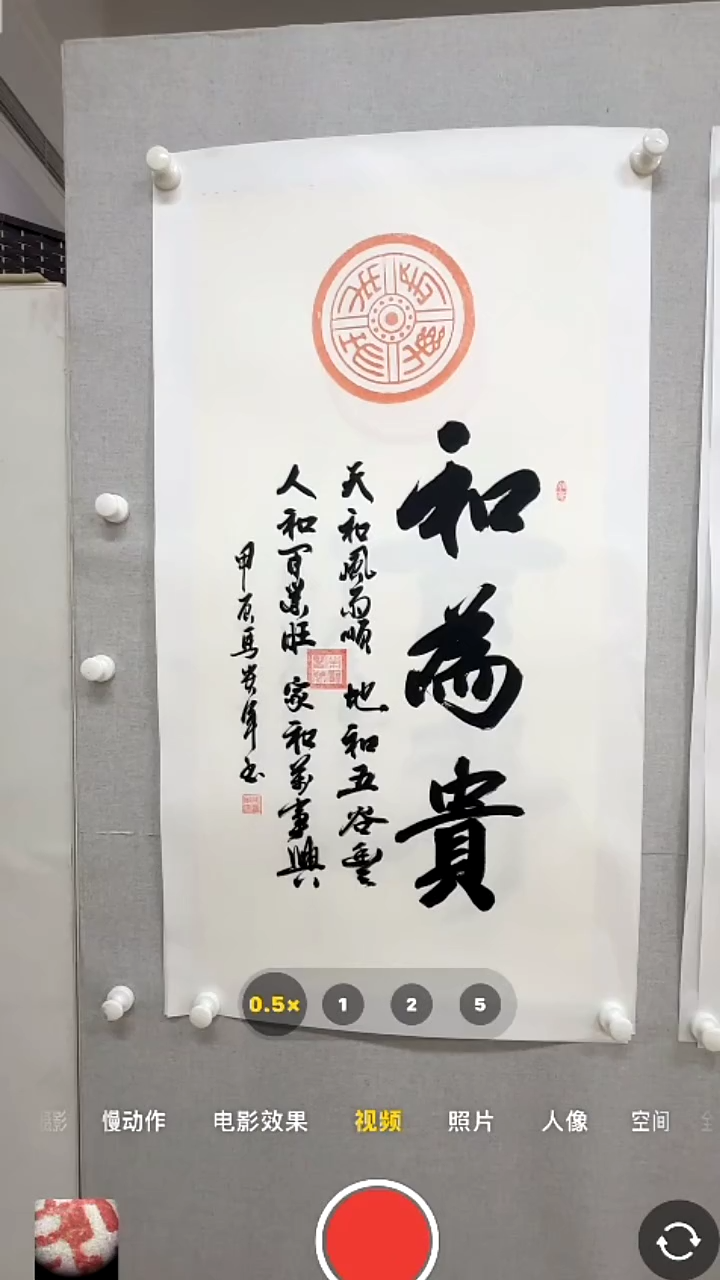 和為貴
天和風雨順 地和五谷豐
人和百業旺 家和萬事興
甲辰馬
0.5×
1
2
5
慢动作
电影效果
视频
照片
人像
空间